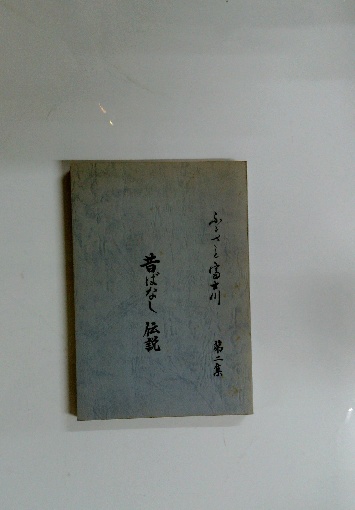 ふるさと富士川
第二集
昔ばなし 伝説